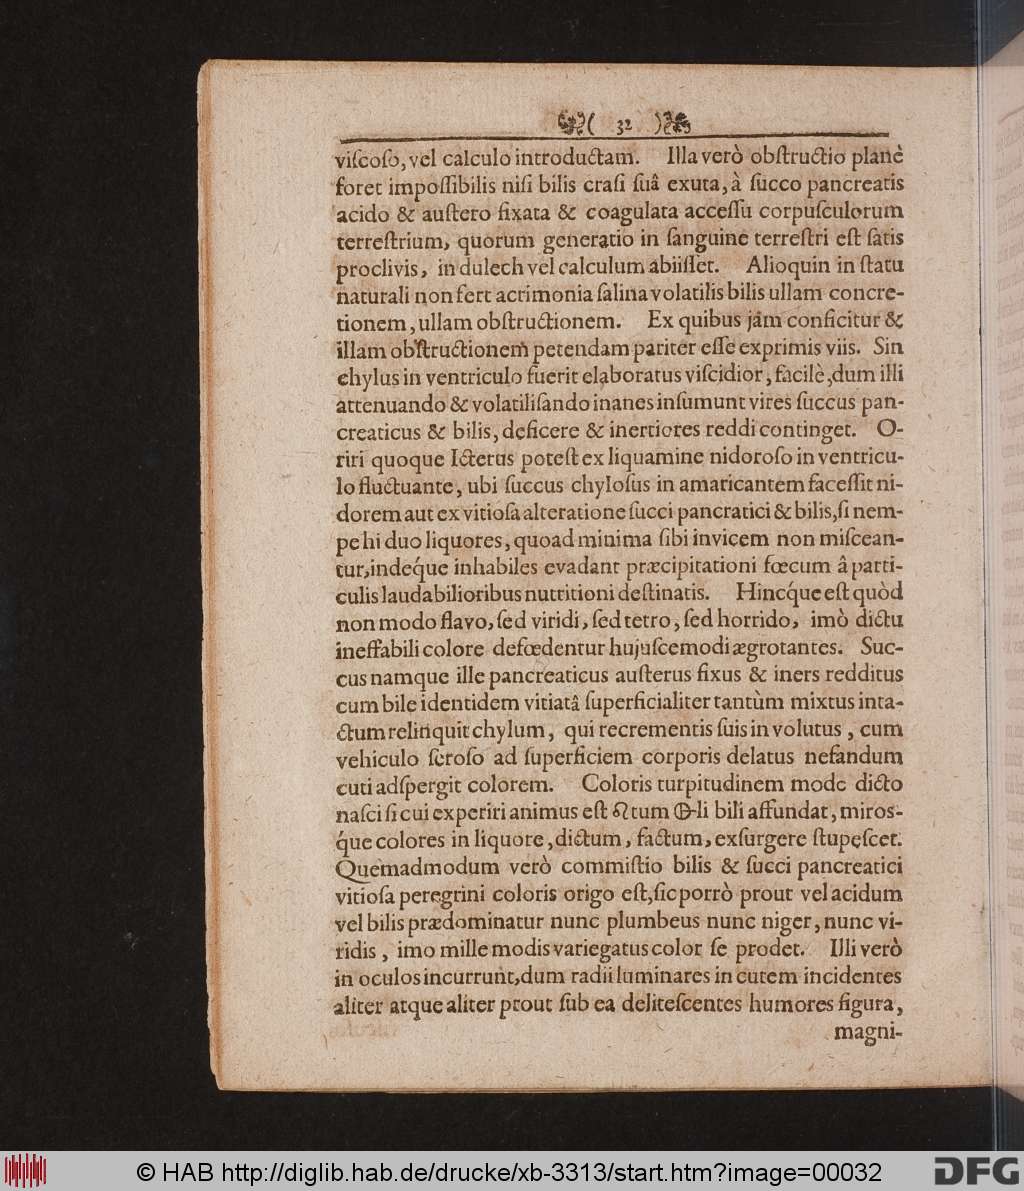 ( 32 )
viſcoſo, vel calculo introductam. Illa verò obſtructio planè
foret impoſſibilis niſi bilis craſi ſuâ exuta, à ſucco pancreatis
acido & auſtero fixata & coagulata acceſſu corpuſculorum
terreſtrium, quorum generatio in ſanguine terreſtri eſt ſatis
proclivis, in dulech vel calculum abiiſſet. Alioquin in ſtatu
naturali non fert acrimonia ſalina volatilis bilis ullam concre-
tionem, ullam obſtructionem. Ex quibus jâm conficitur &
illam obſtructionem petendam pariter eſſe exprimis viis. Sin
chylus in ventriculo fuerit elaboratus viſcidior, facilè, dum illi
attenuando & volatiliſando inanes inſumunt vires ſuccus pan-
creaticus & bilis, deficere & inertiores reddi continget. O-
riri quoque Icterus poteſt ex liquamine nidoroſo in ventricu-
lo fluctuante, ubi ſuccus chyloſus in amaricantem faceſſit ni-
dorem aut ex vitioſa alteratione ſucci pancratici & bilis, ſi nem-
pe hi duo liquores, quoad minima ſibi invicem non miſcean-
tur, indéque inhabiles evadant præcipitationi fœcum â parti-
culis laudabilioribus nutritioni deſtinatis. Hincq́ue eſt quòd
non modo flavo, ſed viridi, ſed tetro, ſed horrido, imò dictu
ineffabili colore defœdentur hujuſcemodi ægrotantes. Suc-
cus namque ille pancreaticus auſterus fixus & iners redditus
cum bile identidem vitiatâ ſuperficialiter tantùm mixtus inta-
ctum relinquit chylum, qui recrementis ſuis in volutus, cum
vehiculo ſeroſo ad ſuperficiem corporis delatus nefandum
cuti adſpergit colorem. Coloris turpitudinem modo dicto
naſci ſi cui experiri animus eſt tum li bili affundat, miros-
q́ue colores in liquore, dictum, factum, exſurgere ſtupeſcet.
Quemadmodum verò commiſtio bilis & ſucci pancreatici
vitioſa peregrini coloris origo eſt, ſic porrò prout vel acidum
vel bilis prædominatur nunc plumbeus nunc niger, nunc vi-
ridis, imo mille modis variegatus color ſe prodet. Illi verò
in oculos incurrunt, dum radii luminares in cutem incidentes
aliter atque aliter prout ſub ea deliteſcentes humores figura,
magni-
© HAB http://diglib.hab.de/drucke/xb-3313/start.htm?image=00032
DFG